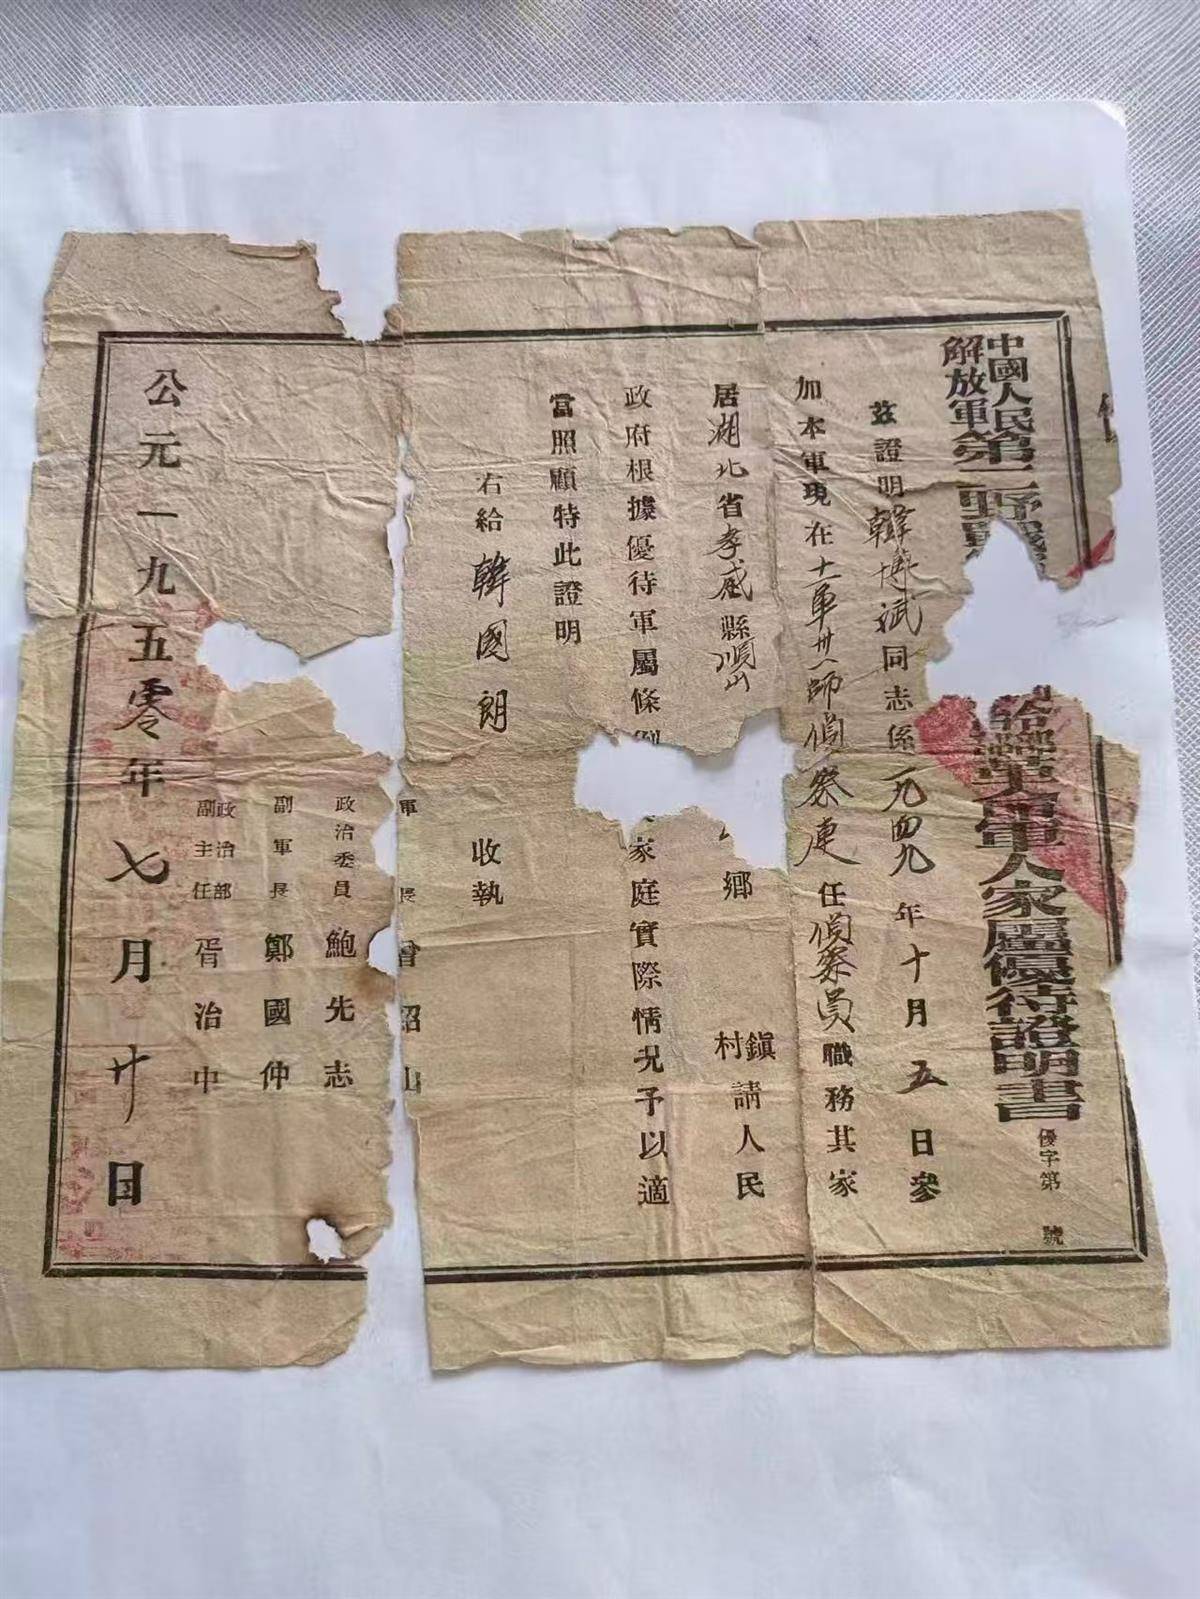 中國人民
解放軍
第二野戰
革命軍人家屬優待證明書
優字第 號
茲證明韓博斌同志係一九四九年十月五日參
加本軍現在十一軍卅一師偵察連任偵察員職務其家
居湖北省孝感縣順山 鄉 村鎮請人民
政府根據優待軍屬條例 家庭實際情况予以適
當照顧特此證明
右給韓國朗 收執
軍長曾紹山
政治委員鮑先志
副軍長鄭國仲
政治部副主任胥治中
公元一九五零年七月廿日